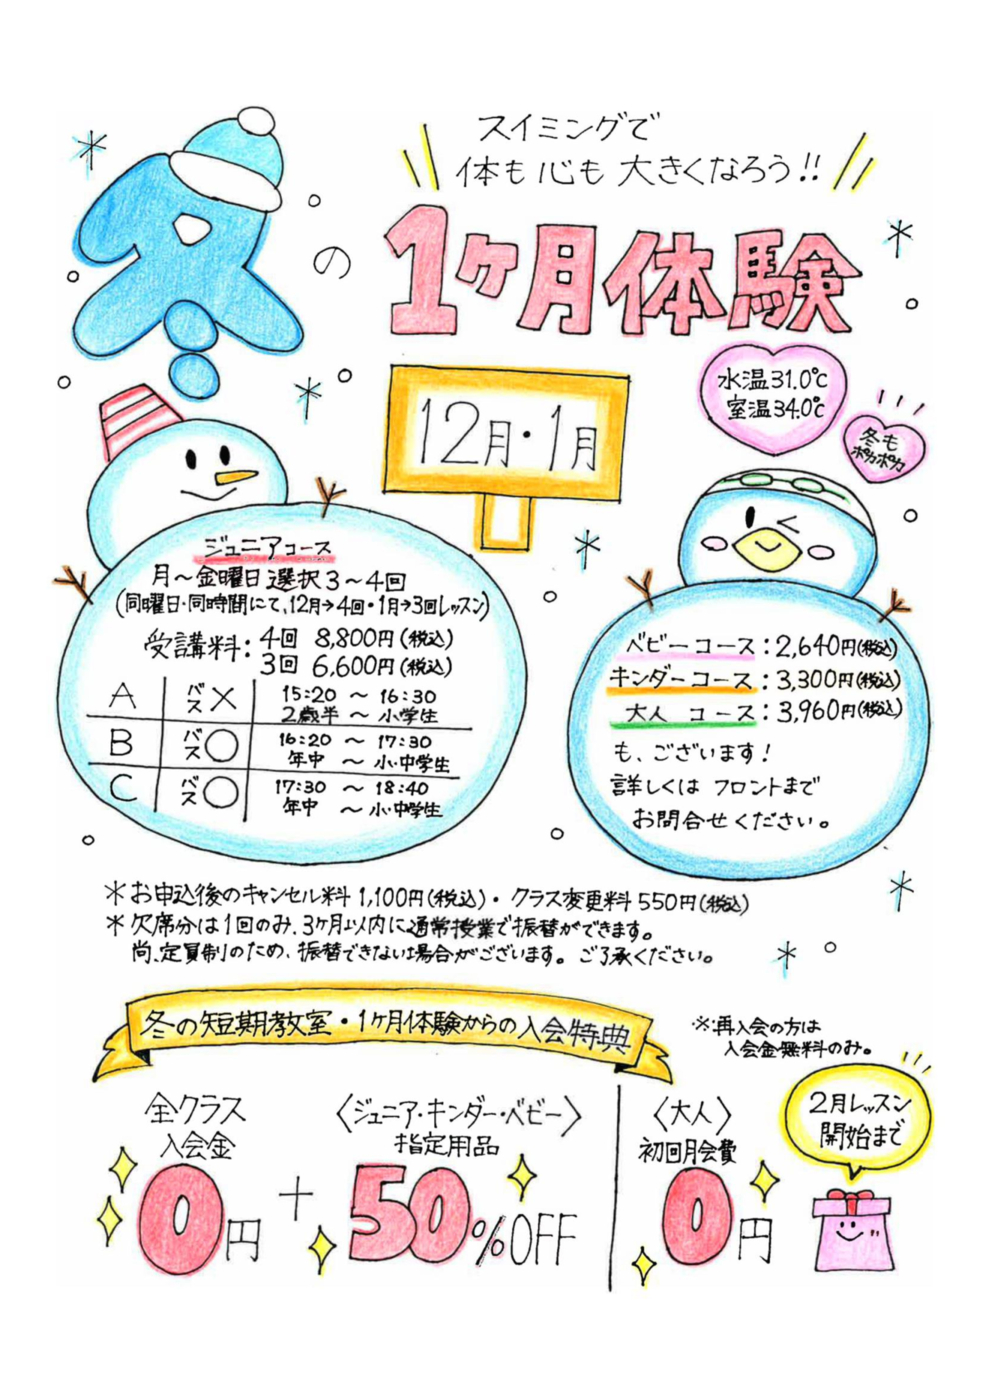 スイミングで
体も心も大きくなろう!!
冬の
1ヶ月体験
12月・1月
水温31.0℃
室温34.0℃
冬も
ポカポカ
ジュニアコース
月～金曜日選択3～4回
(同曜日・同時間にて、12月→4回・1月→3回レッスン)
受講料:4回 8,800円(税込)
3回 6,600円(税込)
A バス✕ 15:20 ～ 16:30
2歳半 ～ 小学生
B バス○ 16:20 ～ 17:30
年中 ～ 小・中学生
C バス○ 17:30 ～ 18:40
年中 ～ 小・中学生
ベビーコース:2,640円(税込)
キンダーコース:3,300円(税込)
大人 コース:3,960円(税込)
も、ございます!
詳しくは フロントまで
お問合せください。
＊お申込後のキャンセル料1,100円(税込)・クラス変更料550円(税込)
＊欠席分は1回のみ、3ヶ月以内に通常授業で振替ができます。
尚、定員制のため、振替できない場合がございます。ご了承ください。
冬の短期教室・1ヶ月体験からの入会特典
※:再入会の方は
入会金無料のみ。
全クラス
入会金
0円
+
〈ジュニア・キンダー・ベビー〉
指定用品
50%OFF
〈大人〉
初回月会費
0円
2月レッスン
開始まで